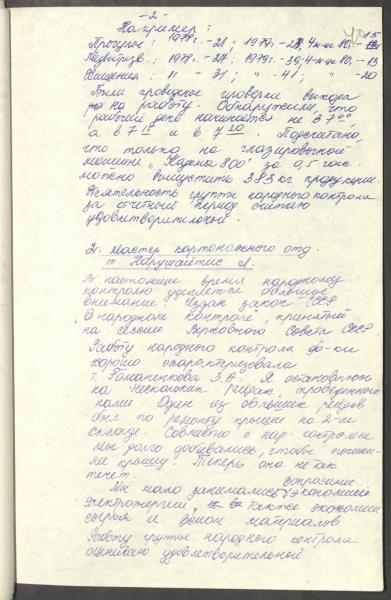 -2-
Например:
Прогулов: 1978г. -21; 1979г. -28; 4 м-ца 80г. - 15
Медвытрезв.: 1978г. -27; 1979г. -39; 4 м-ца 80г. - 13
Хищения: " - 31 ; " - 41 ; " - 20
Были проведены проверки выхода
на работу. Обнаружили, что
рабочий день начинается не в 7 00,
а в 7 15 и в 7 20. Подсчитано,
что только на глазировочной
машине "Кадма 800" за 0,5 час.
можно выпустить 383 кг продукции.
Деятельность группы народного контроля
за отчетный период считаю
удовлетворительной.
2. Мастер картонажного отд.
т. Нарушайтис А.
В настоящее время народному
контролю уделяется большое
внимание. Издан закон СССР
"О народном контроле", принятый
на сессии Верховного Совета СССР
Работу народного контроля ф-ки
хорошо охарактеризовала
т. Романенкова З.А. Я остановлюсь
на нескольких рейдах, проведенных
нами. Один из больших рейдов
был по ремонту крыши на 2-м
складе. Совместно с нар. контролем
мы долго добивались, чтобы почини-
ли крышу. Теперь она не так
течет.
Мы мало занимались вопросами экономии
электроэнергии, а также экономии
сырья и материалов
Работу группы народного контроля
оцениваю удовлетворительной